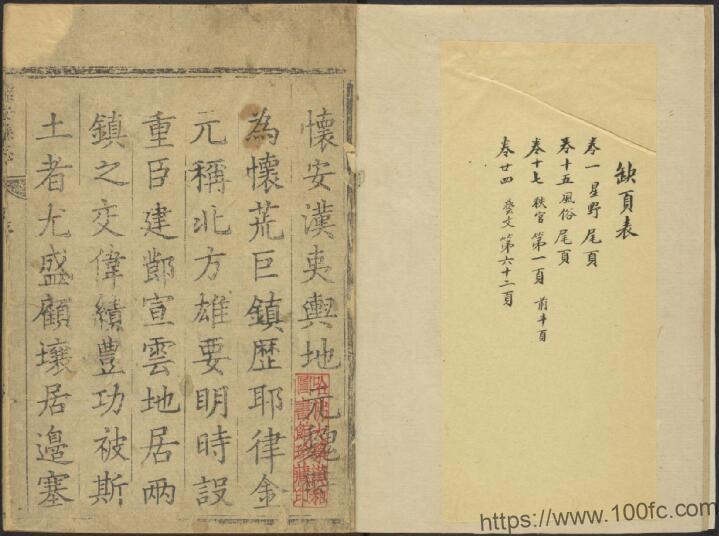 缺頁表
卷一 星野 尾頁
卷十五 風俗 尾頁
卷十七 秩官 第一頁 前半頁
卷廿四 藝文 第六十二頁
懷安漢夷輿地元魏
為懷荒巨鎮歷耶律金
元稱北方雄要明時設
重臣建鄼宣雲地居兩
鎮之交偉績豊功被斯
土者尤盛顧壤居邊塞
圖書館珍藏印
https://www.100fc.com